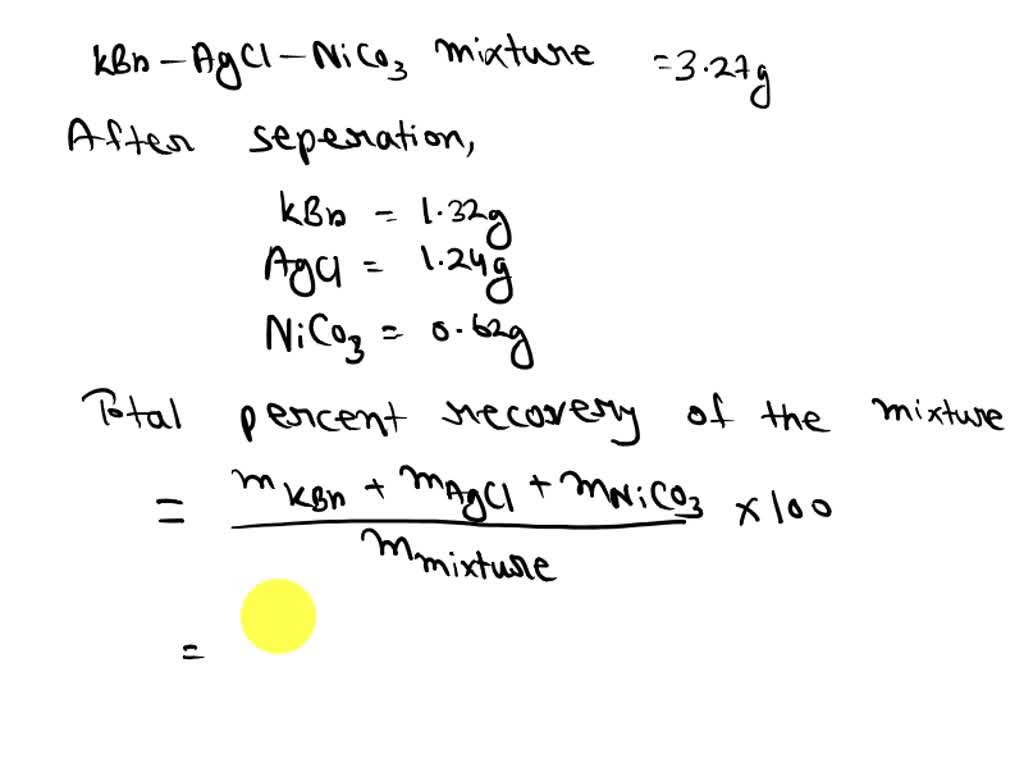 KBr – AgCl – NiCO3 mixture = 3.27g
After seperation,
KBr = 1.32g
AgCl = 1.24g
NiCO3 = 0.62g
Total percent recovery of the mixture
= mKBr + mAgCl + mNiCO3 × 100
mmixture
=